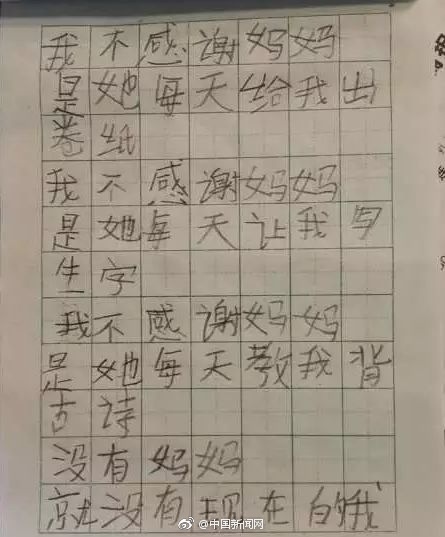 我不感谢妈妈
是她每天给我出
卷纸
我不感谢妈妈
是她每天让我写
生字
我不感谢妈妈
是她每天教我背
古诗
没有妈妈
就没有现在的我
@中国新闻网